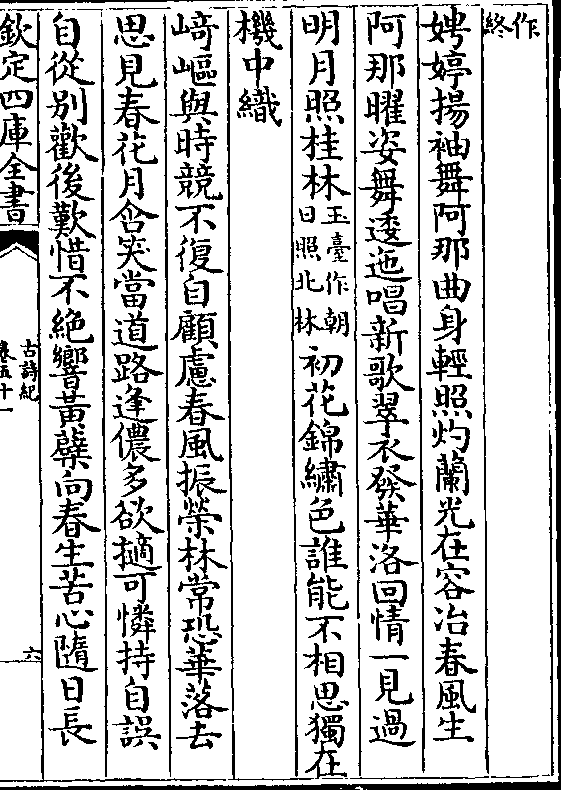 作終
娉婷揚袖舞阿那曲身輕照灼蘭光在容冶春風生
阿那曜姿舞逶迤唱新歌翠衣發華洛回情一見過
明月照桂林玉臺作朝日照北林初花錦繡色誰能不相思獨在
機中織
崎嶇與時競不復自顧慮春風振榮林常恐華落去
思見春花月含笑當道路逢儂多欲擿可憐持自誤
自從別歡後歎惜不絶響黃蘗向春生苦心隨日長
欽定四庫全書
古詩紀
卷五十一
六